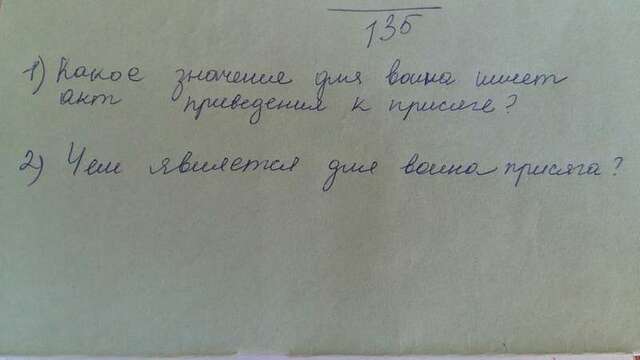 135
1) Какое значение для воина имеет
акт приведения к присяге?
2) Чем является для воина присяга?